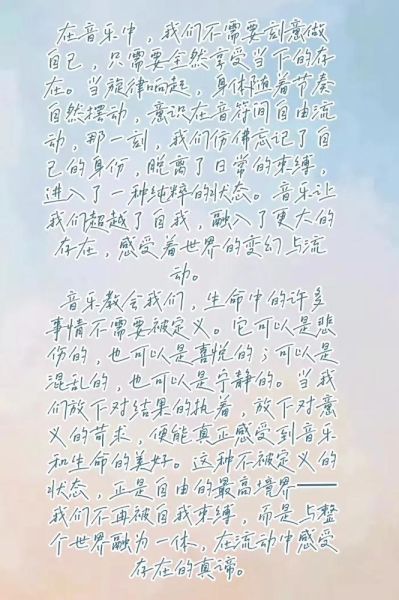 在音乐中，我们不需要刻意做
自己，只需要全然享受当下的存
在。当旋律响起，身体随着节奏
自然摆动，意识在音符间自由流
动，那一刻，我们仿佛忘记了自
己的身份，脱离了日常的束缚，
进入了一种纯粹的状态。音乐让
我们超越了自我，融入了更大的
存在，感受着世界的变幻与流
动。
音乐教会我们，生命中的许多
事情不需要被定义。它可以是悲
伤的，也可以是喜悦的；可以是
混乱的，也可以是宁静的。当我
们放下对结果的执着，放下对意
义的苛求，便能真正感受到音乐
和生命的美好。这种不被定义的
状态，正是自由的最高境界——
我们不再被自我束缚，而是与整
个世界融为一体，在流动中感受
存在的真谛。